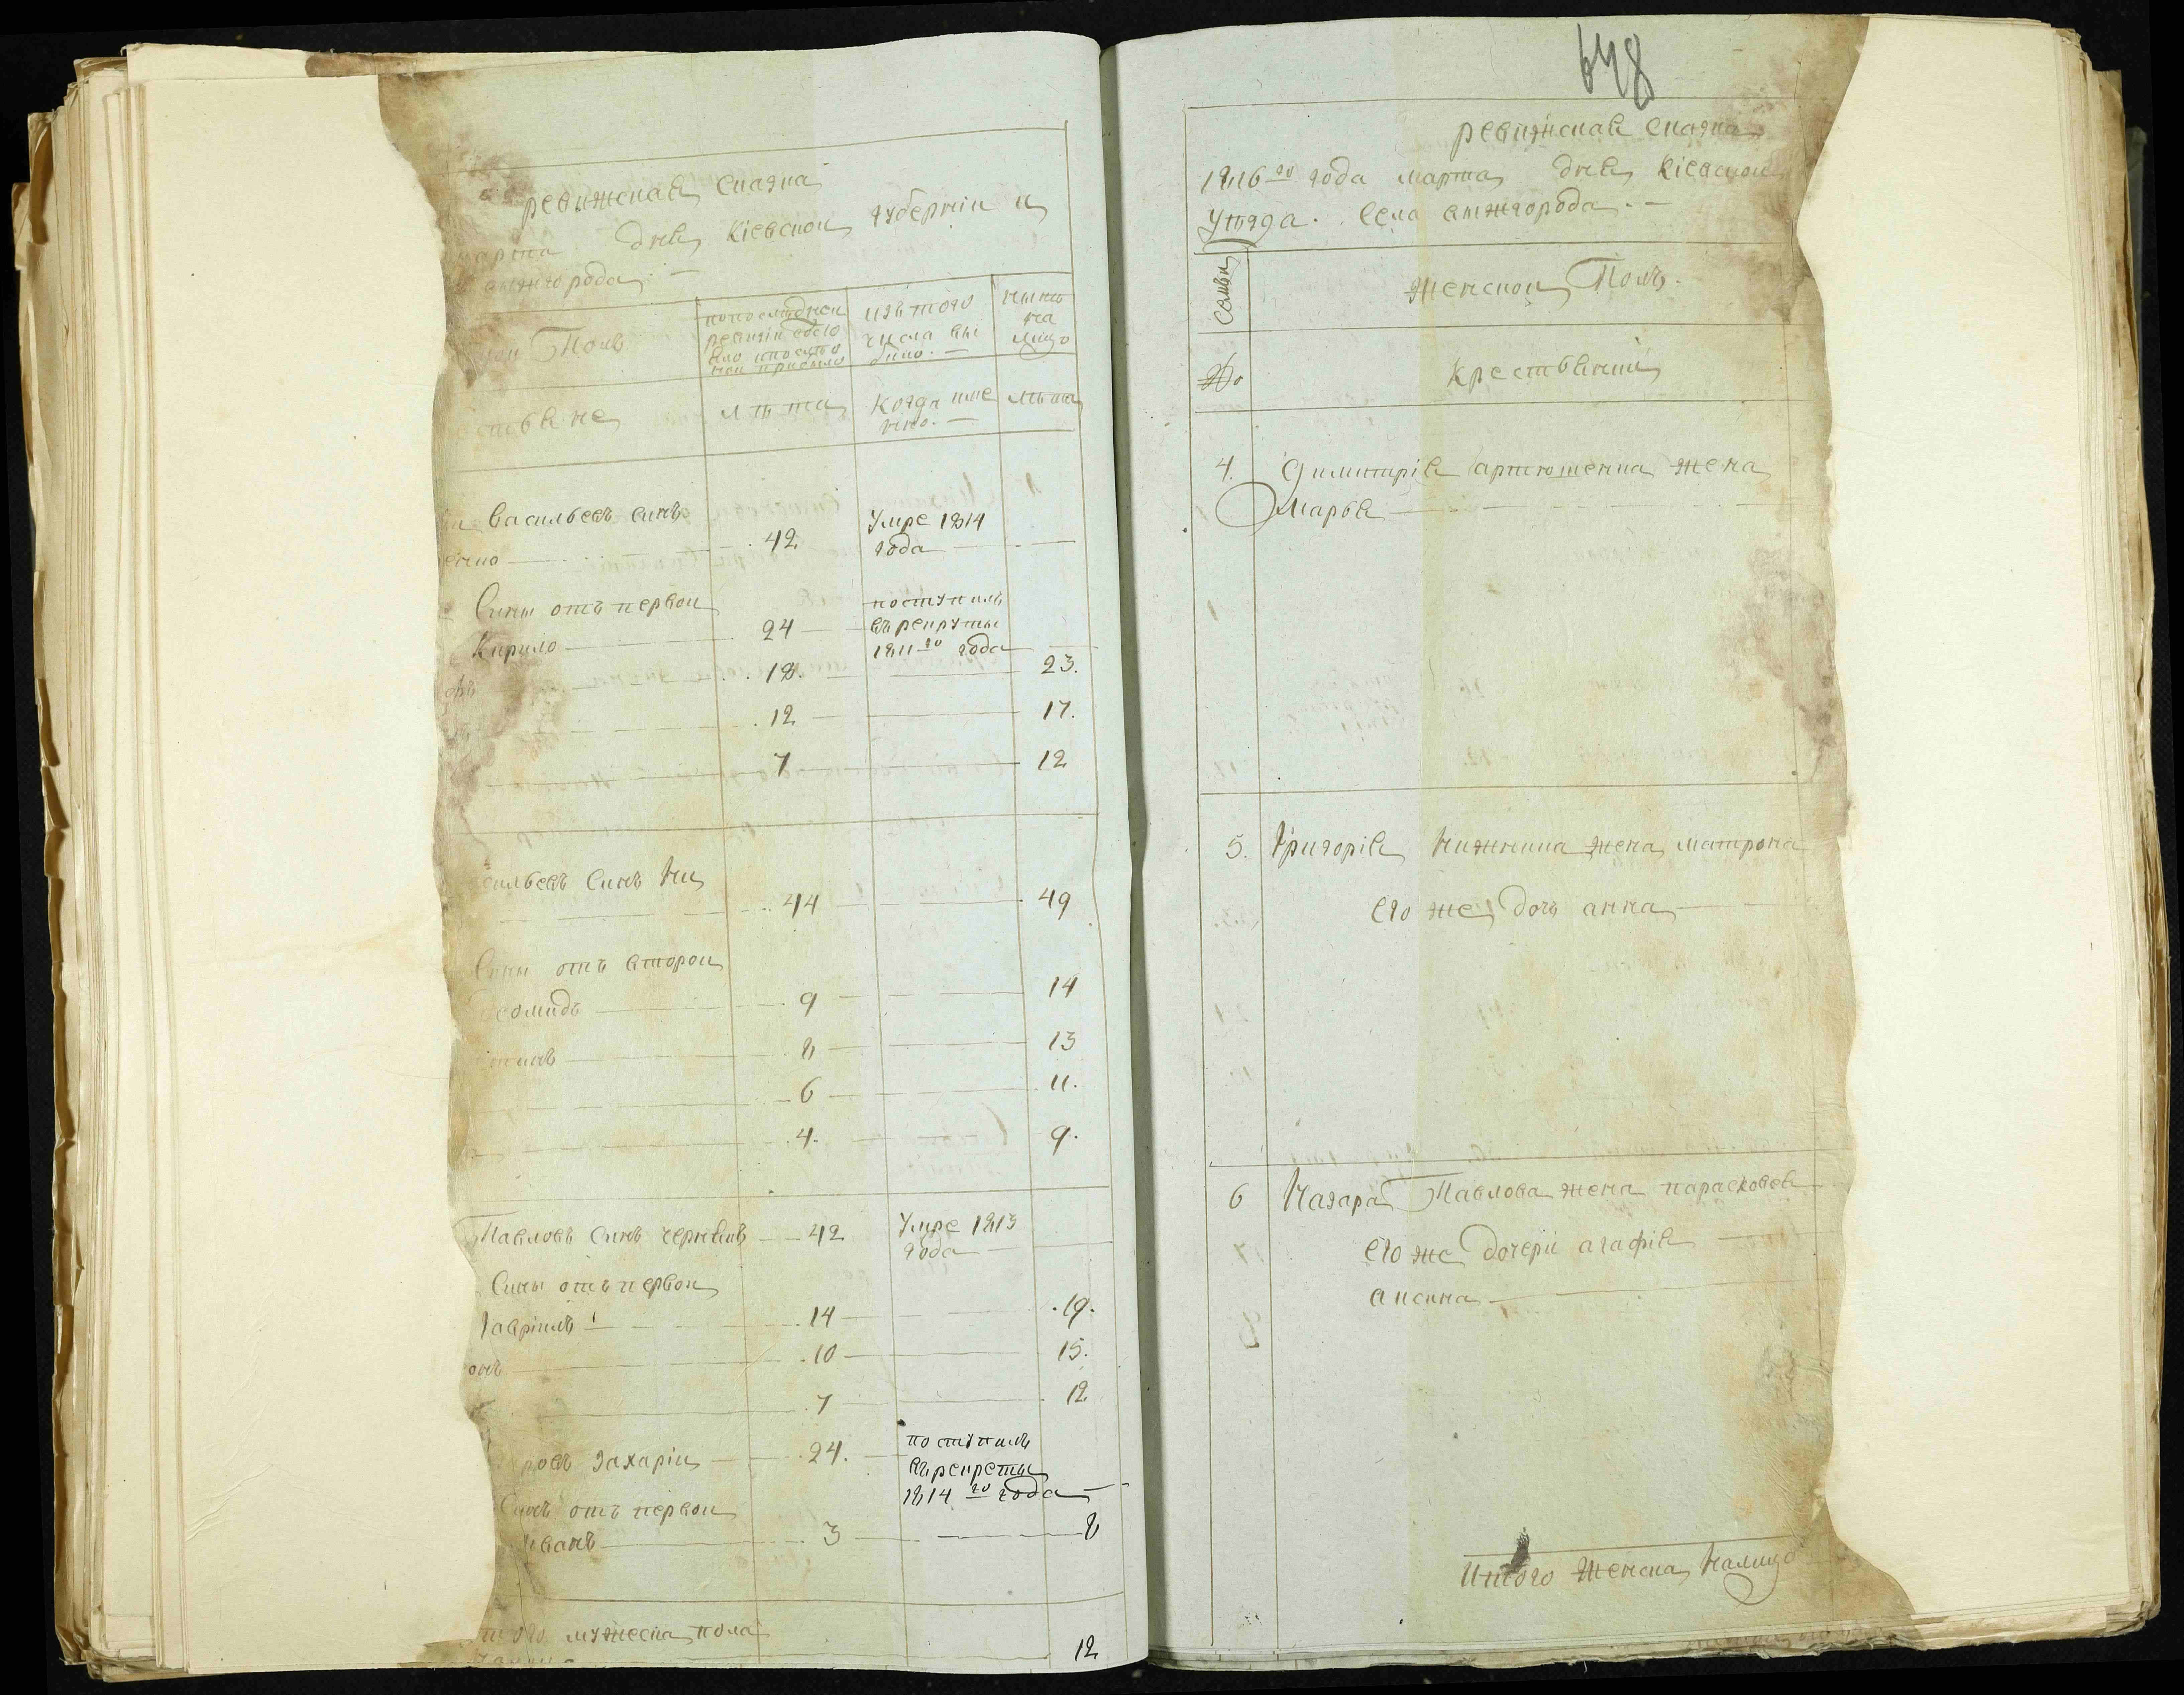 ревижская сказка
марта дня кіевской губерніи и
вижгорода. —
кой Полъ
попоследней
ревизіи состо
яло ипослѣ
ней прибыло
изътого
числа вы
было. —
нынѣ
на
лицо
стьяне
лѣта
когда име
нно. —
лѣта
Васильевъ Синъ
енко — 42
Умре 1814
года —
Сины отъ первой
Кирило — 24
поступилъ
въ рекруты
1811 го года
18. — 23.
12 — 17.
7 — 12
сильевъ Синъ Ни
44 — 49
Сины отъ второй
еомидъ — 9 — 14
8 — 13
6 — 11.
4. — 9.
Павловъ Синъ чернякъ — 42
Умре 1813
года —
Сины отъ первой
Гавріилъ — 14 — 19.
онъ — 10 — 15.
7 — 12
ровъ Захаріи — 24.
поступилъ
въ рекреты
1814 го года —
Синъ отъ первой
Иванъ — 3 — 8
того мужеска пола
12
648
ревижская сказка
1816 го года марта дня кіевской
Уѣзда. Села вижгорода. —
Семьи
Женской Полъ.
№
крестьянки
4. Димитрія артюшенка жена
Марья —
5. Григорія Нижника жена матрона
его же дочь анна —
6 Назара Павлова жена парасковея
его же дочери агафія —
аксина —
Итого Женска Налицо